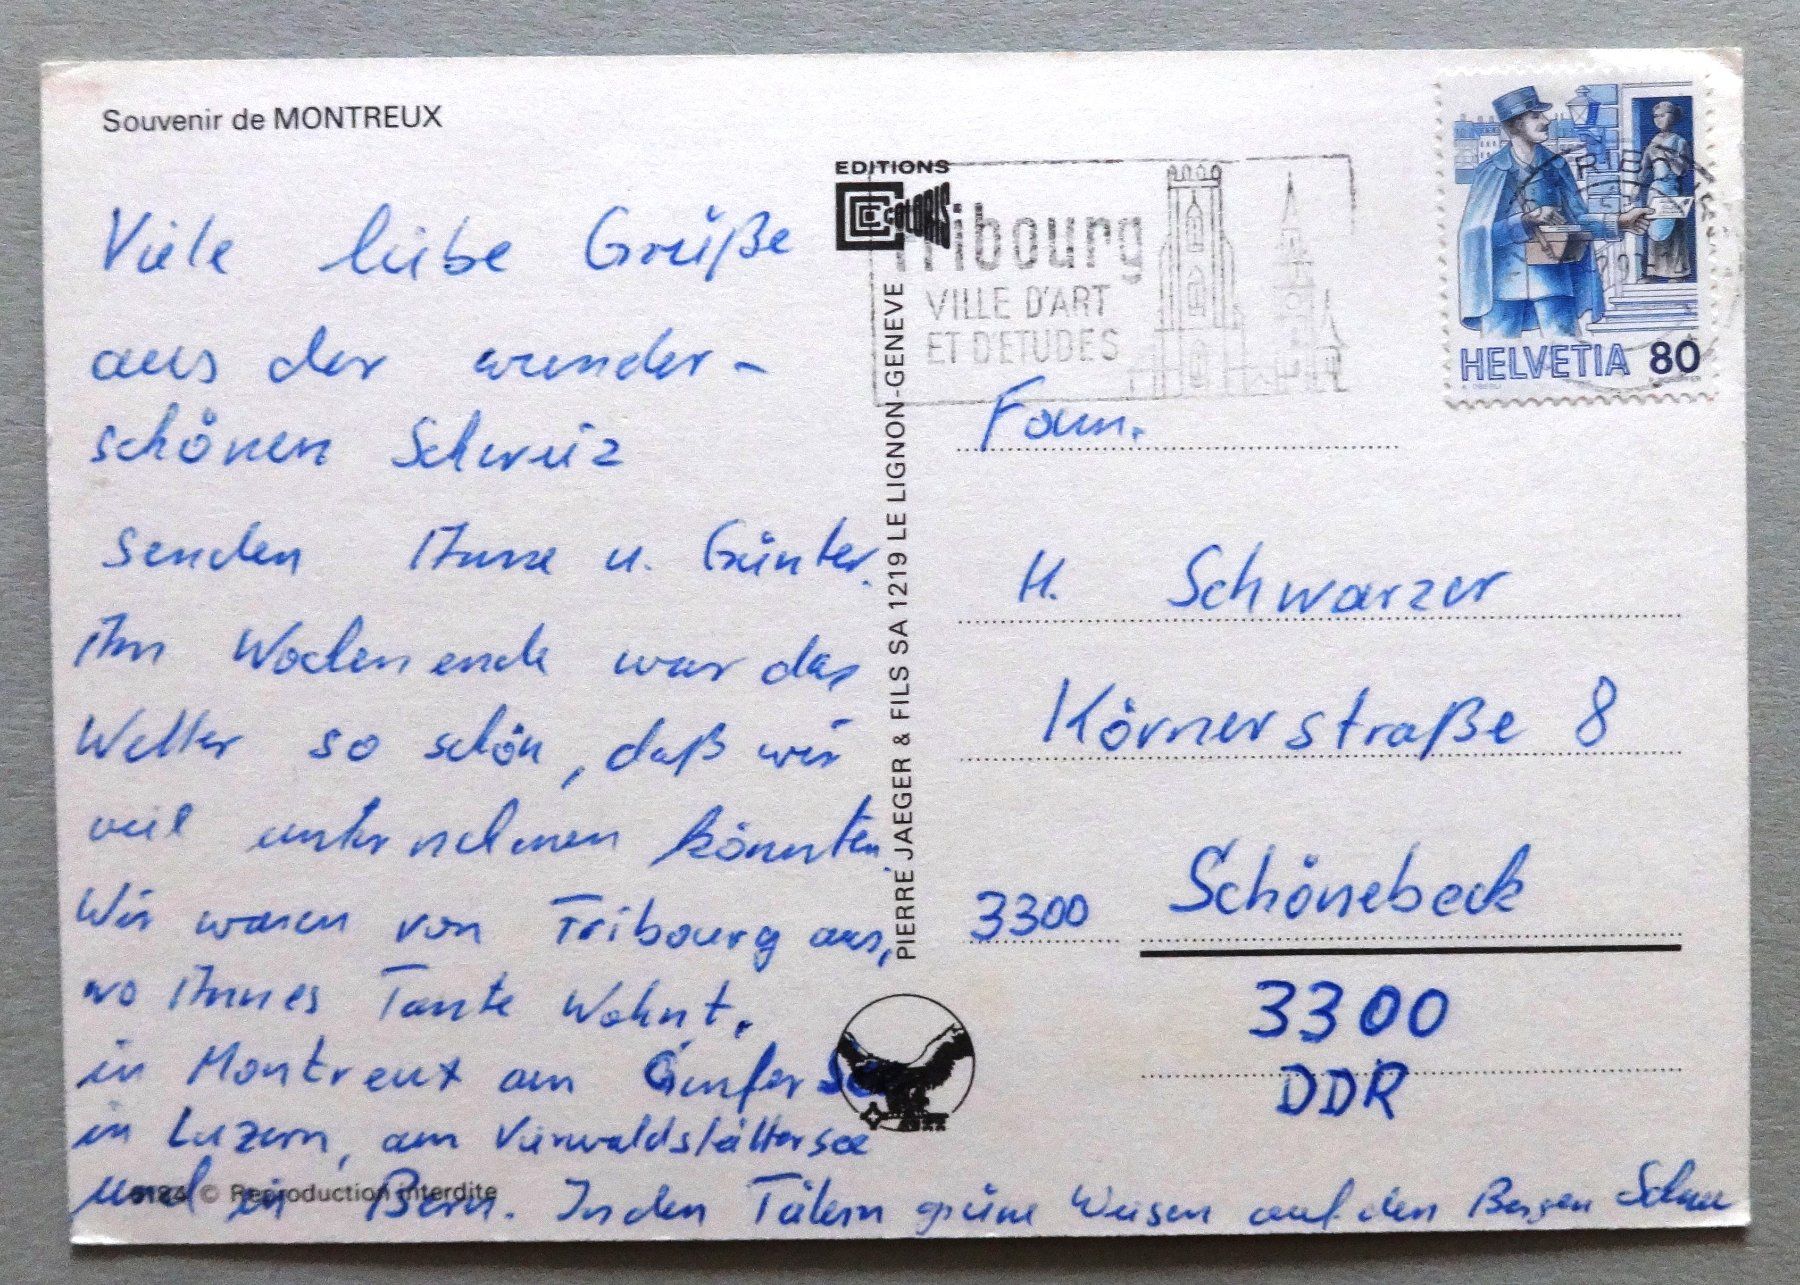 Souvenir de MONTREUX
Viele liebe Grüße
aus der wunder-
schönen Schweiz
senden Anne u. Günter.
Am Wochenende war das
Wetter so schön, daß wir
viel unternehmen konnten.
Wir waren von Fribourg aus,
wo Annes Tante wohnt,
in Montreux am Genfer See
in Luzern, am Vierwaldstättersee
und in Bern. In den Tälern grüne Wiesen auf den Bergen Schnee
© Reproduction interdite
EDITIONS
COLORIS
PIERRE JAEGER & FILS SA 1219 LE LIGNON-GENEVE
Fribourg
VILLE D'ART
ET D'ETUDES
HELVETIA 80
Fam.
H. Schwarzer
Körnerstraße 8
3300 Schönebeck
3300
DDR